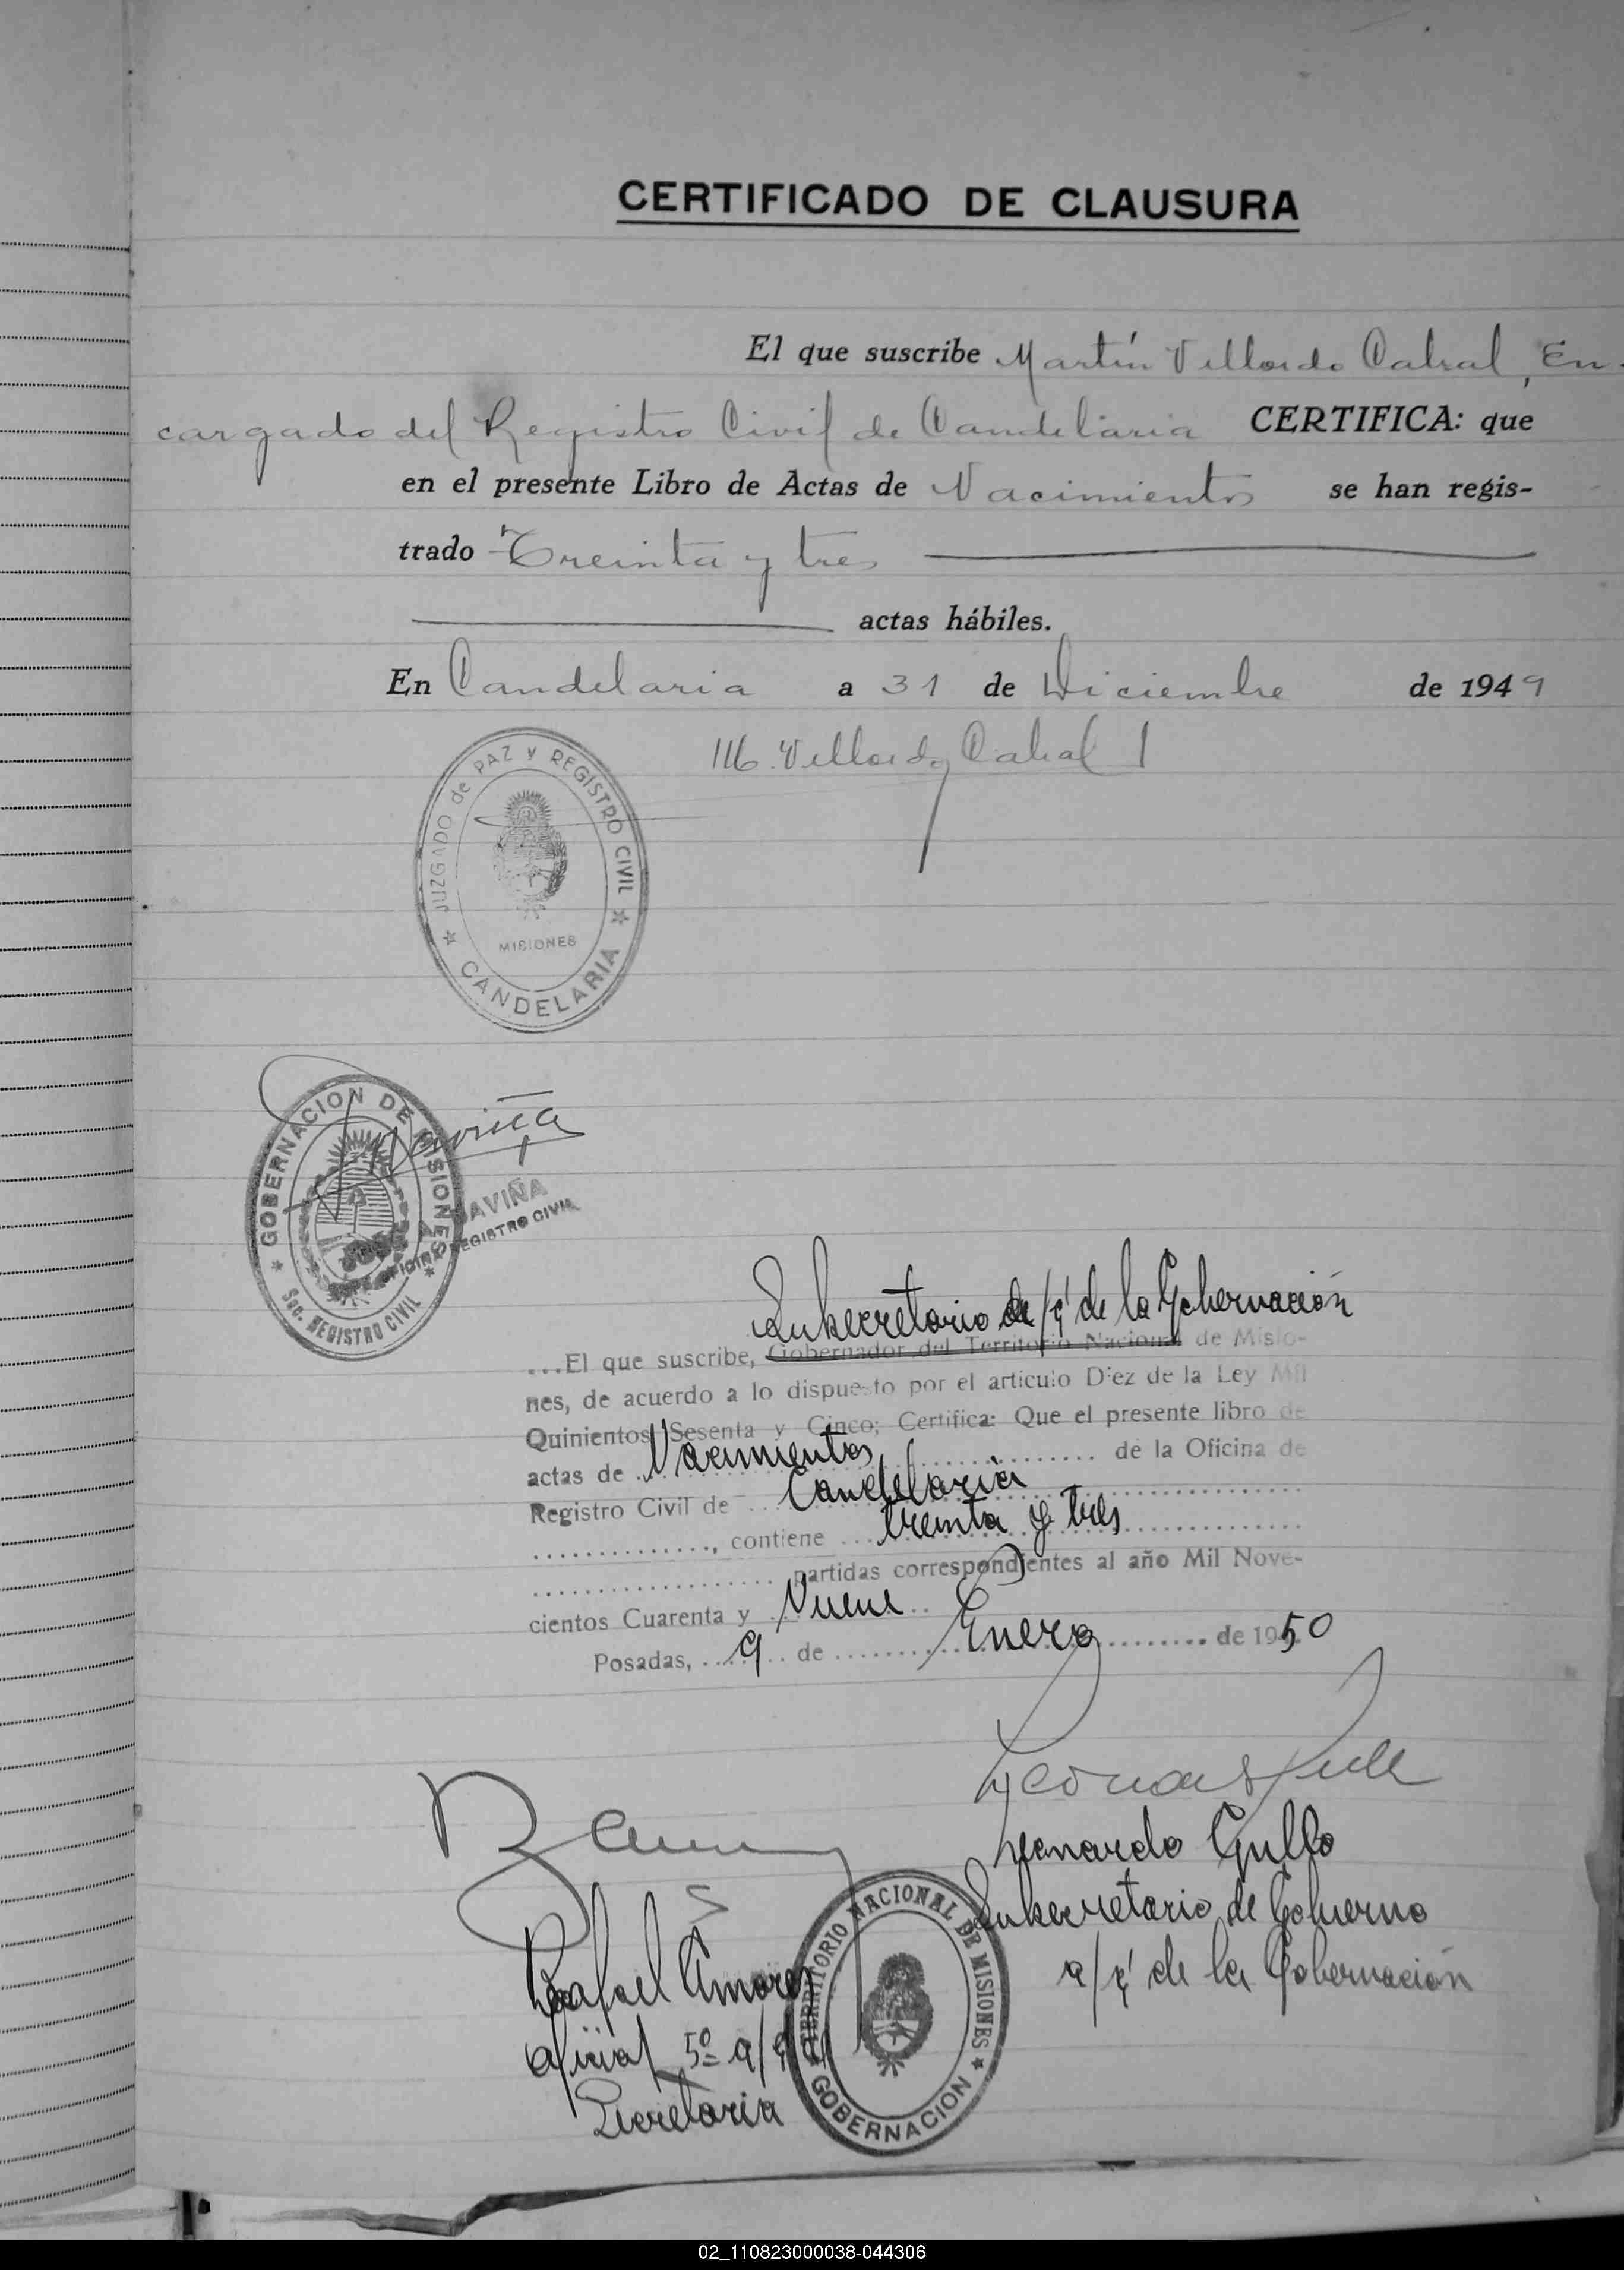 CERTIFICADO DE CLAUSURA
El que suscribe Martín Villordo Cabral, En-
cargado del Registro Civil de Candelaria CERTIFICA: que
en el presente Libro de Actas de Nacimientos se han regis-
trado Treinta y tres
actas hábiles.
En Candelaria a 31 de Diciembre de 1949
M. Villordo Cabral
JUZGADO de PAZ y REGISTRO CIVIL
MISIONES
CANDELARIA
GOBERNACION DE MISIONES
Sec. REGISTRO CIVIL
Naviña
JOSE A. NAVIÑA
JEFE OFICINA REGISTRO CIVIL
Subsecretario a/c de la Gobernación
...El que suscribe, Gobernador del Territorio Nacional de Misio-
nes, de acuerdo a lo dispuesto por el artículo Diez de la Ley Mil
Quinientos Sesenta y Cinco; Certifica: Que el presente libro de
actas de Nacimientos de la Oficina de
Registro Civil de Candelaria
, contiene treinta y tres
partidas correspondientes al año Mil Nove-
cientos Cuarenta y Nueve
Posadas, 9 de Enero de 1950
Leonardo Gullo
Subsecretario de Gobierno
a/c de la Gobernación
Rafael Amores
Oficial 5º a/c de
Secretaría
TERRITORIO NACIONAL DE MISIONES
GOBERNACION
02_110823000038-044306